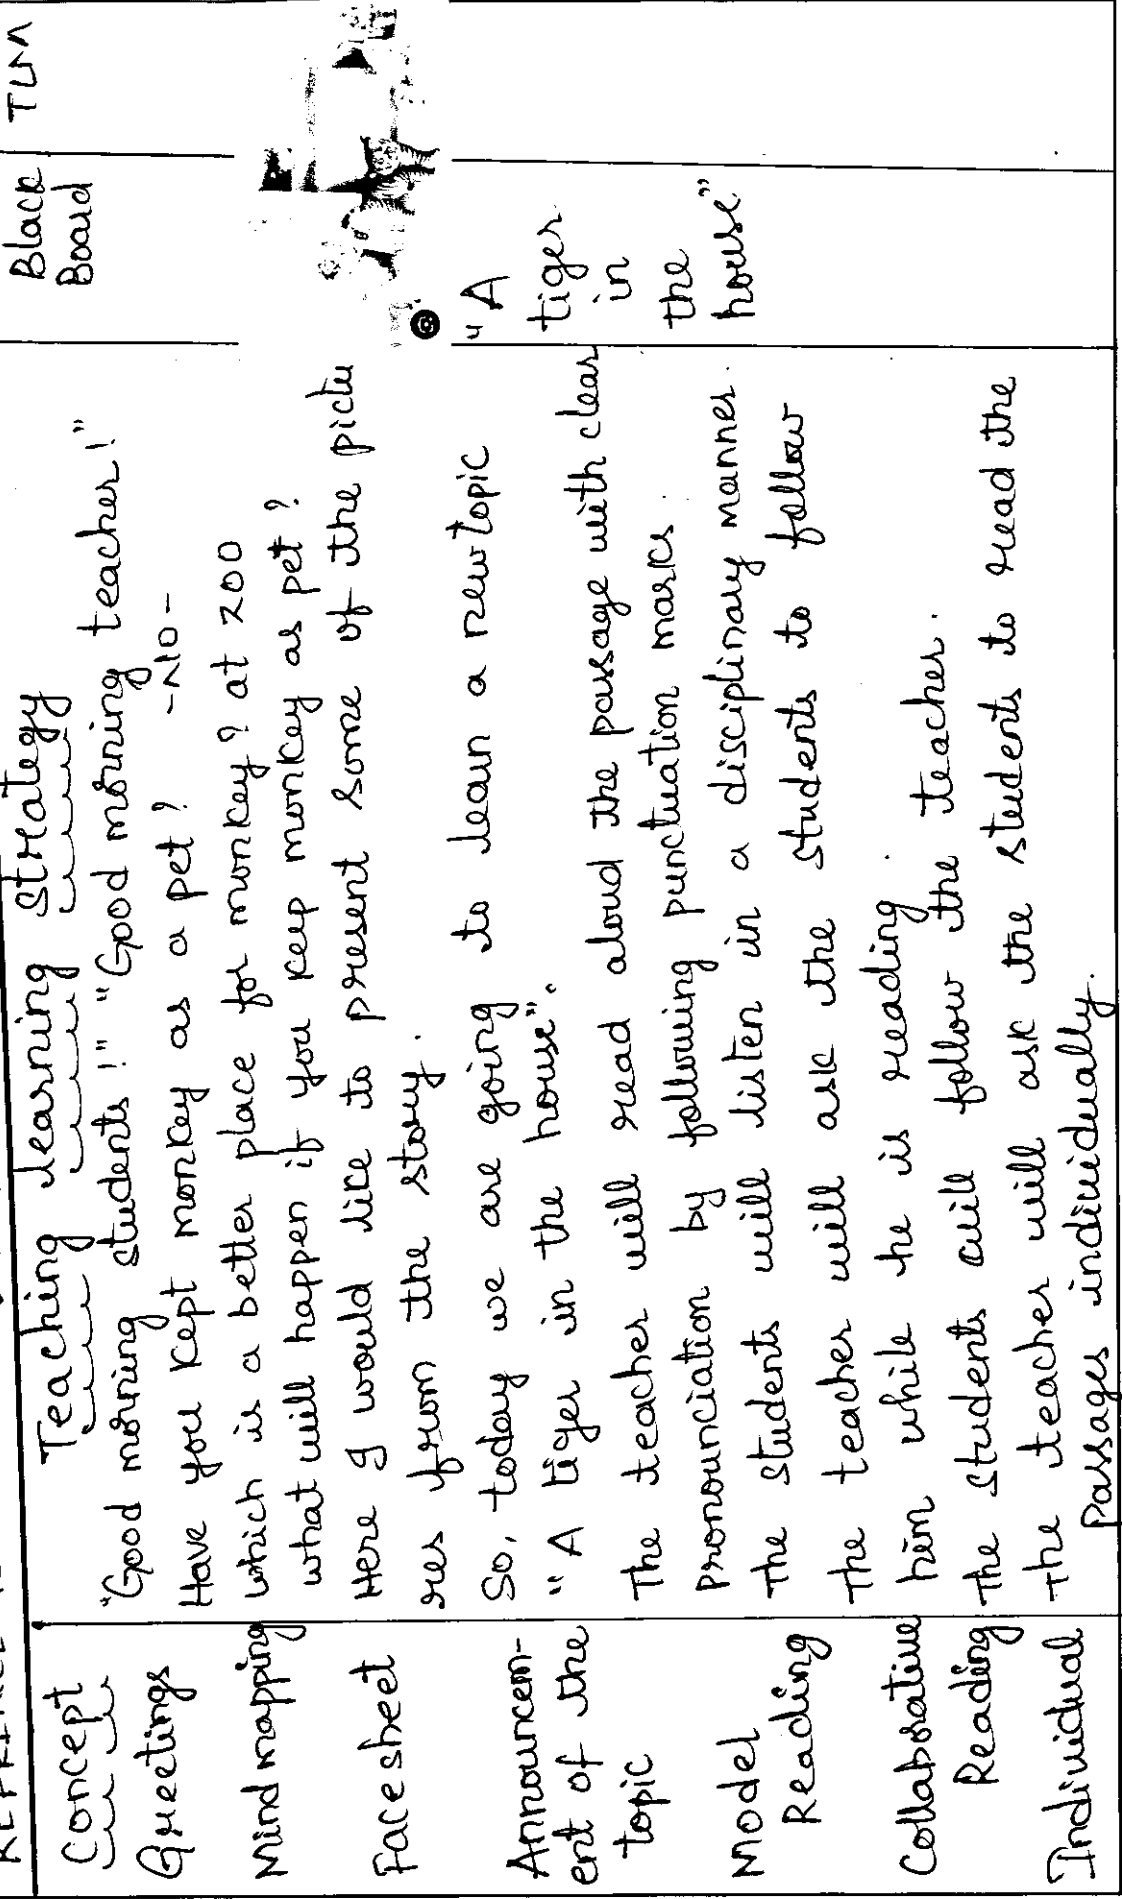 Concept
Teaching learning strategy
Black Board
TLM
Greetings
"Good morning students!" "Good morning teacher!"
Mind mapping
Have you kept monkey as a pet? -NO-
which is a better place for monkey? at zoo
what will happen if you keep monkey as pet?
Facesheet
Here I would like to present some of the pictu
res from the story.
Announcem-
ent of the
topic
So, today we are going to learn a new topic
"A tiger in the house".
"A
tiger
in
the
house"
Model
Reading
The teacher will read aloud the passage with clear
pronounciation by following punctuation marks.
The students will listen in a disciplinary manner.
Collaborative
Reading
The teacher will ask the students to follow
him while he is reading.
The students will follow the teacher.
Individual
The teacher will ask the students to read the
passages individually.